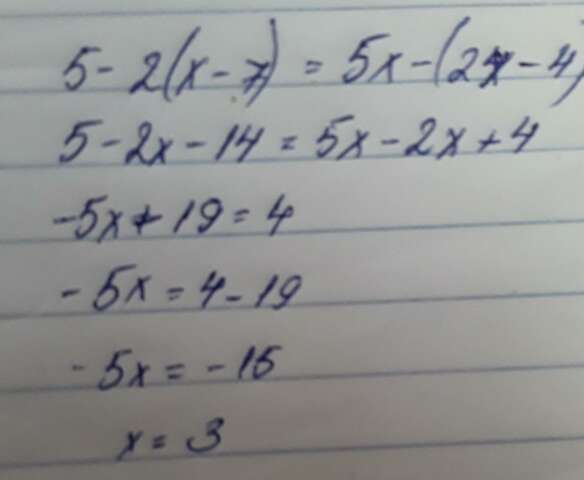 5-2(x-7) = 5x-(2x-4)
5-2x-14 = 5x-2x+4
-5x+19=4
-5x=4-19
-5x=-15
x=3